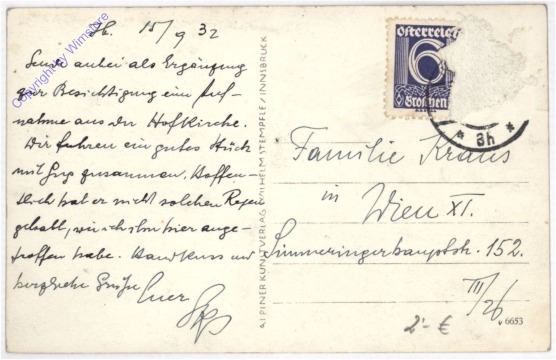 Jk. 15/9 32
Sende anbei als Ergänzung
zur Besichtigung eine Auf-
nahme aus der Hofkirche.
Wir fuhren ein gutes Stück
mit zusammen. Hoffen-
tlich hat er nicht solchen Regen
gehabt, wie ich ihn hier ange-
troffen habe. Handkuss und
herzliche Grüße Euer
Copyright by Wimstore
ALPINER KUNSTVERLAG WILHELM STEMPFLE / INNSBRUCK
Österreich
6
Groschen
* 8h *
Familie Kraus
in
Wien XI.
Simmeringerhauptstr. 152.
III/26
6653
2'- €